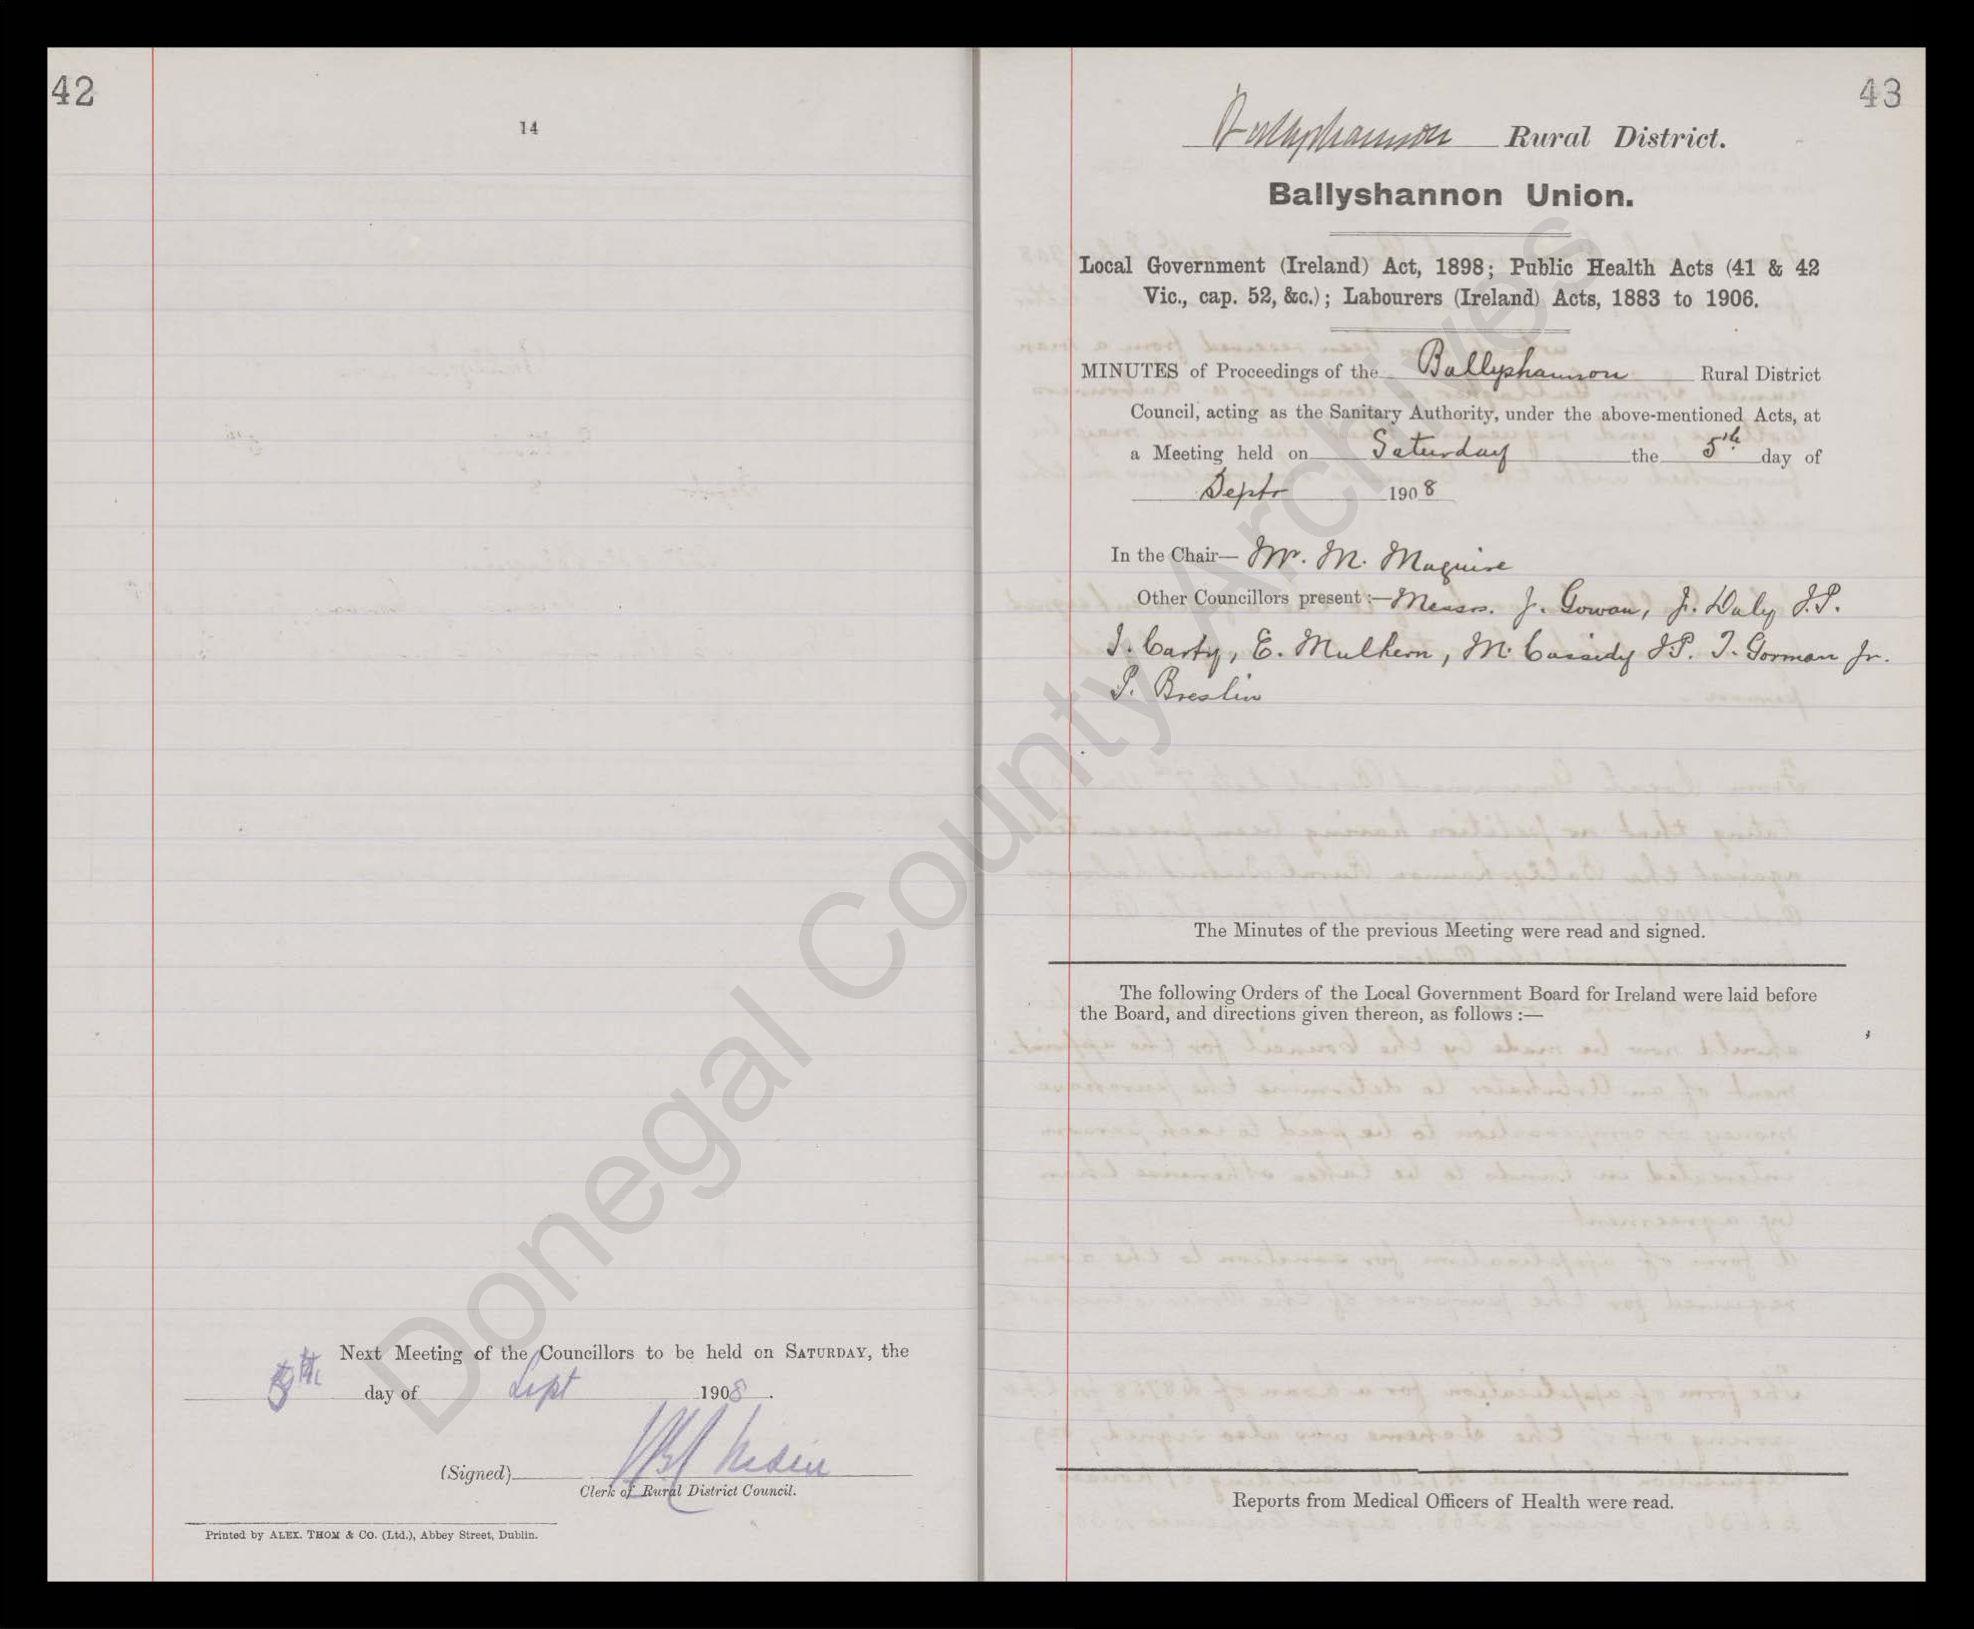 42
14
Next Meeting of the Councillors to be held on SATURDAY, the
5th day of Sept 1908.
(Signed)
Clerk of Rural District Council.
Printed by ALEX. THOM & CO. (Ltd.), Abbey Street, Dublin.
43
Ballyshannon Rural District.
Ballyshannon Union.
Local Government (Ireland) Act, 1898; Public Health Acts (41 & 42
Vic., cap. 52, &c.); Labourers (Ireland) Acts, 1883 to 1906.
MINUTES of Proceedings of the Ballyshannon Rural District
Council, acting as the Sanitary Authority, under the above-mentioned Acts, at
a Meeting held on Saturday the 5th day of
Septr 1908
In the Chair— Mr. M. Maguire
Other Councillors present :— Messrs. J. Gowan, J. Daly J.P.
J. Carty, E. Mulhern, M. Cassidy J.P. T. Gorman Jr.
P. Breslin
The Minutes of the previous Meeting were read and signed.
The following Orders of the Local Government Board for Ireland were laid before
the Board, and directions given thereon, as follows :—
Reports from Medical Officers of Health were read.
Donegal County Archives